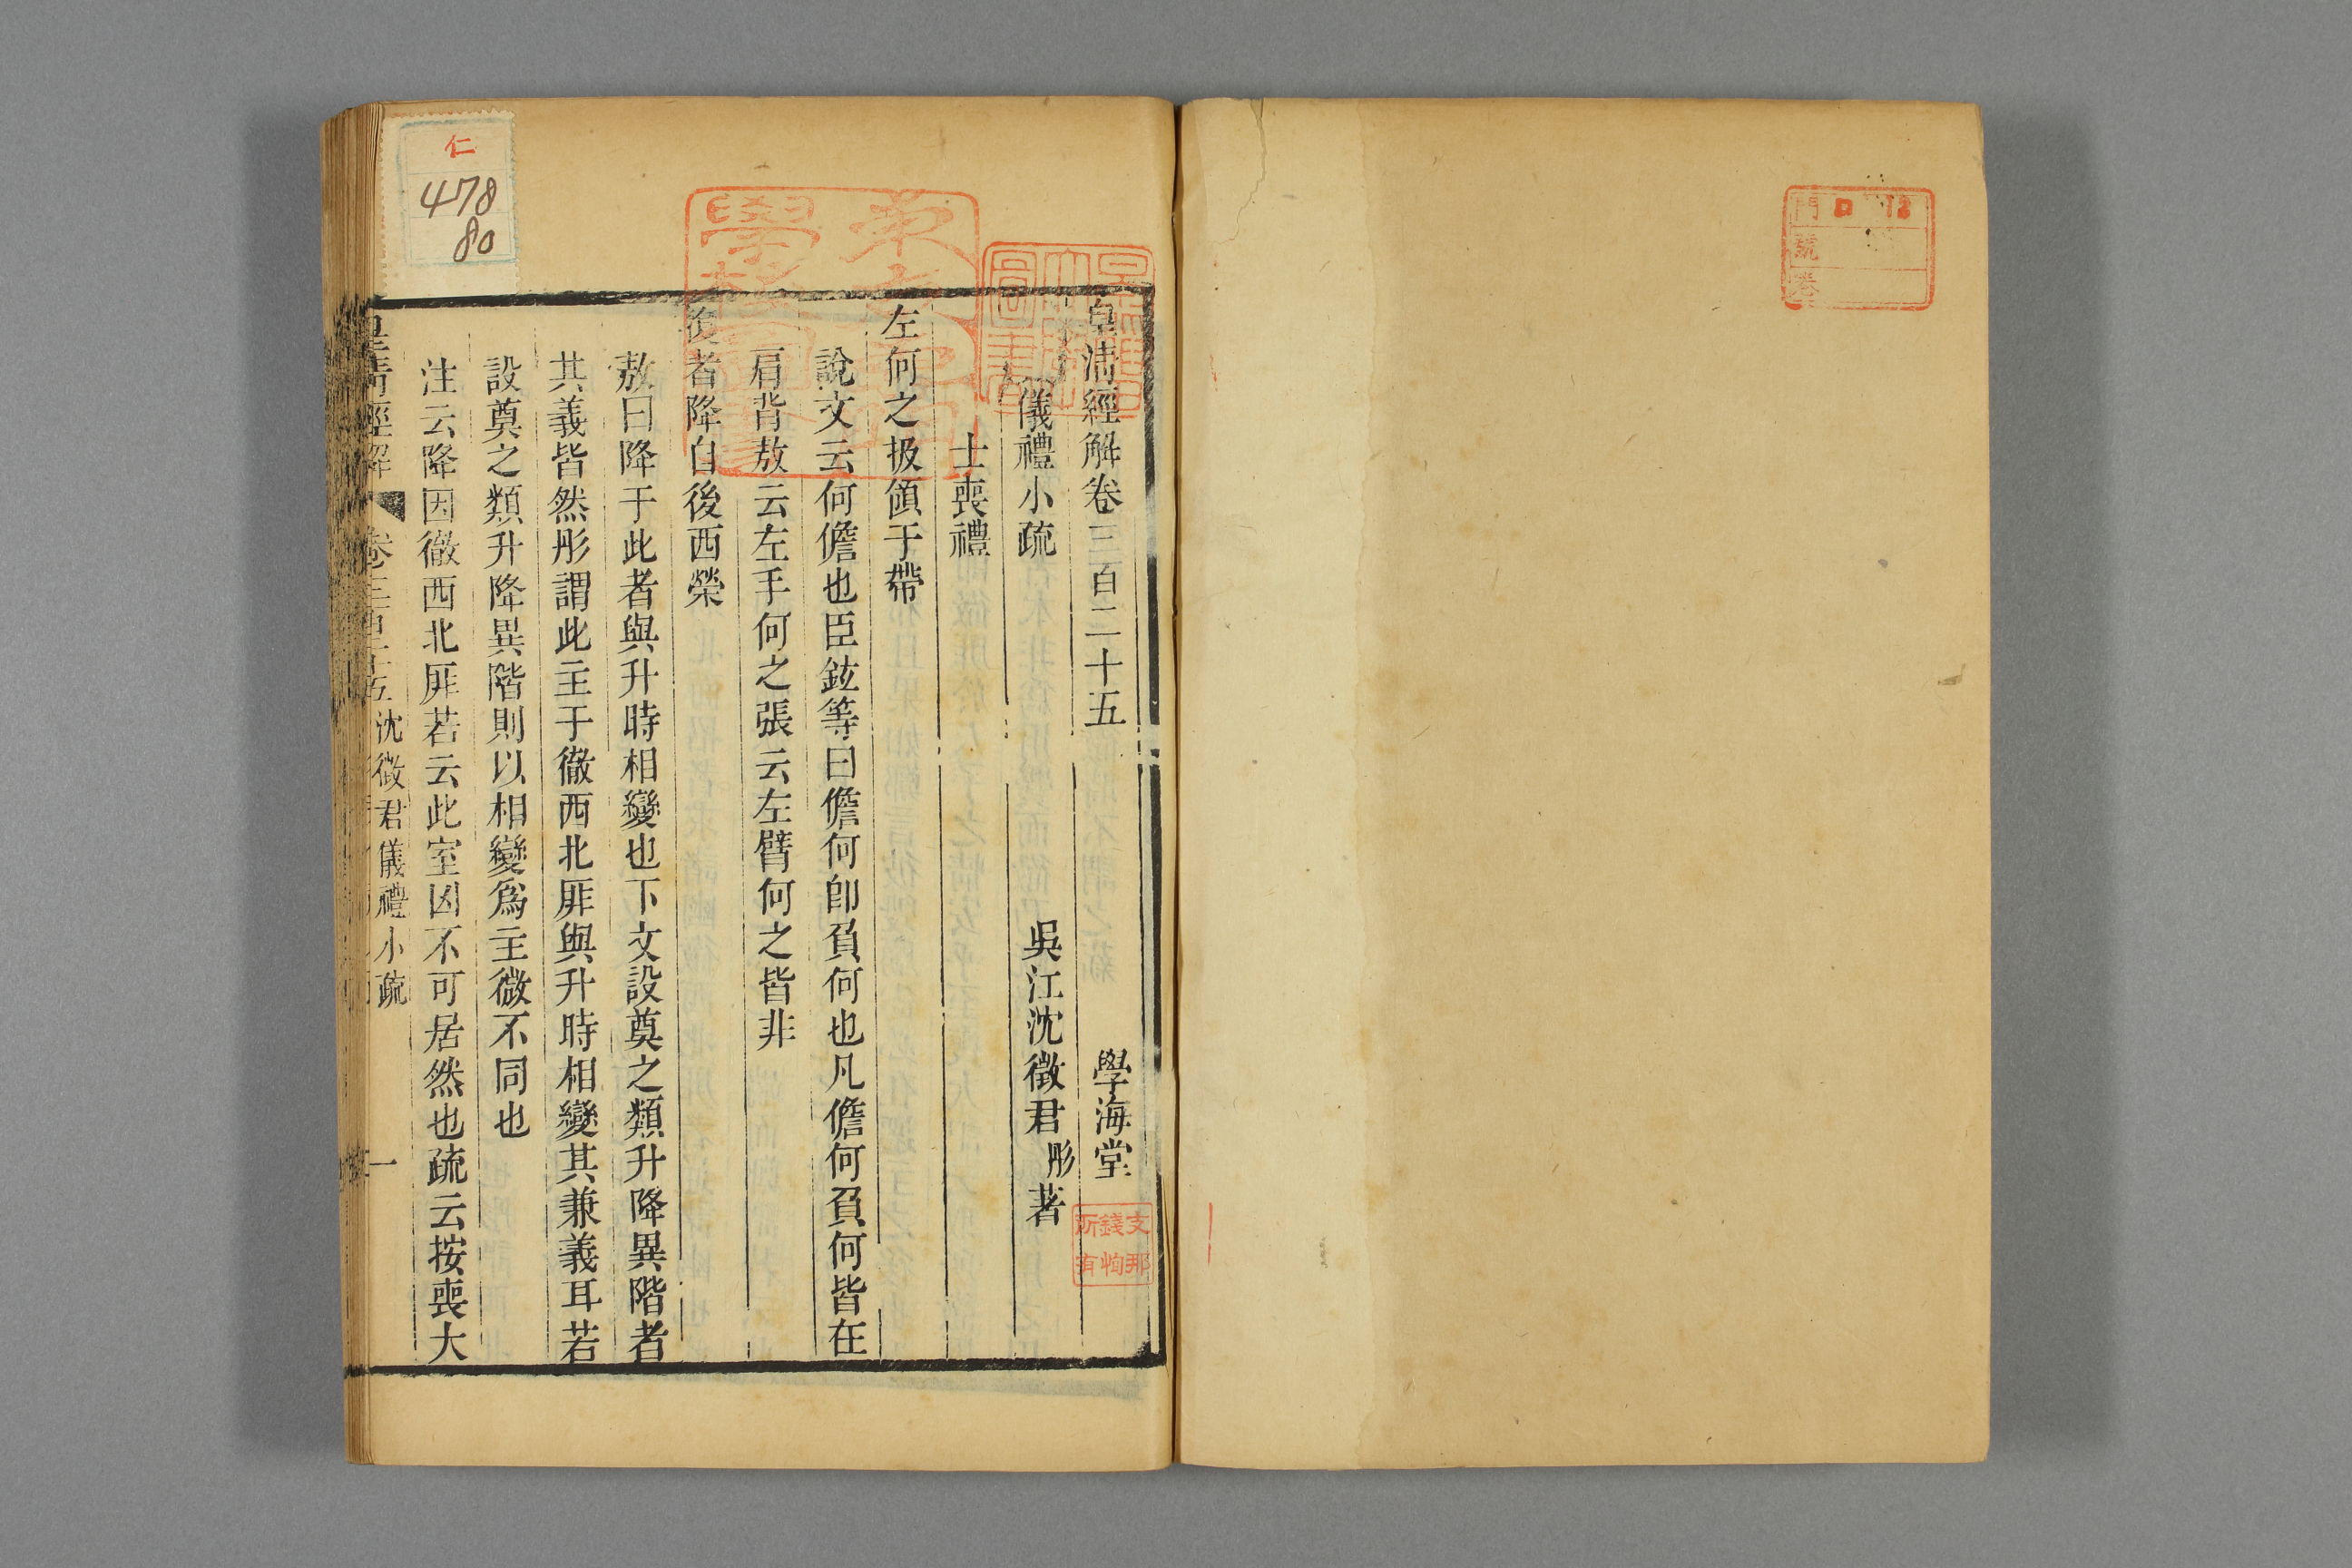 門 號 卷
皇清經解卷三百二十五 學海堂
儀禮小疏 吳江沈徵君彤著
士喪禮
左何之扱領于帶
說文云何儋也臣鉉等曰儋何卽負何也凡儋何負何皆在
肩背敖云左手何之張云左臂何之皆非
復者降自後西榮
敖曰降于此者與升時相變也下文設奠之類升降異階者
其義皆然彤謂此主于徹西北厞與升時相變其兼義耳若
設奠之類升降異階則以相變爲主微不同也
注云降因徹西北厞若云此室凶不可居然也疏云按喪大
皇清經解 卷三百二十五 沈徵君儀禮小疏 一
仁
478
80
支那
錢恂
所有